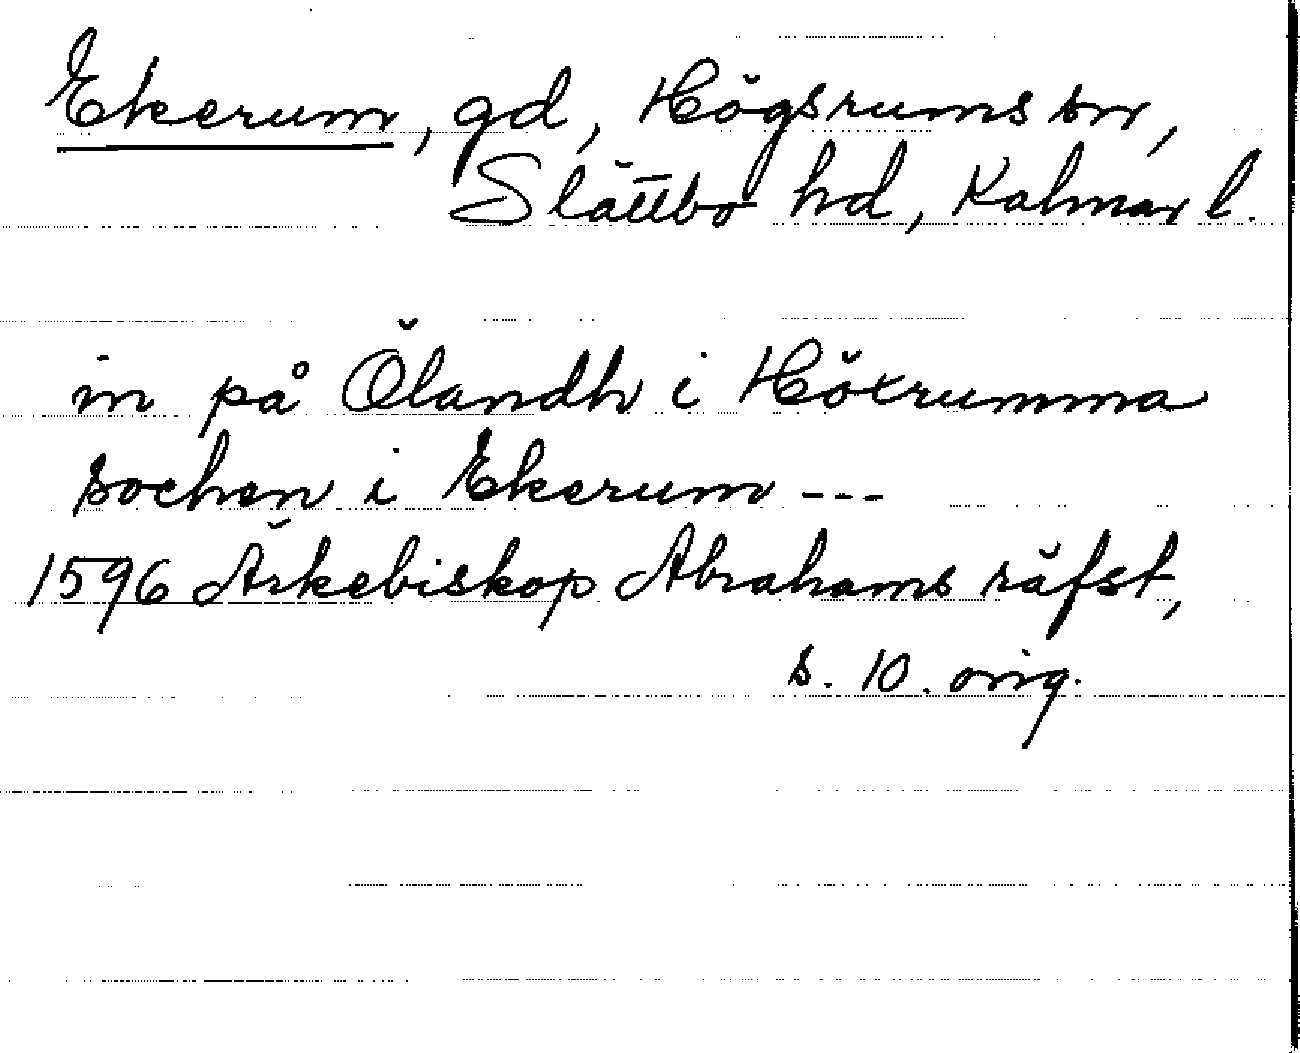 Ekerum, gd, Högsrums sn,
Slättbo hd, Kalmar l.
in på Ölandh i Höxrumma
sochen i Ekerum ---
1596 Ärkebiskop Abrahams räfst,
s. 10. orig.